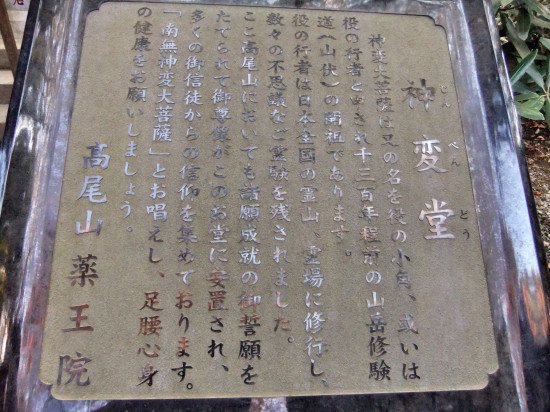 神変堂
じんぺんどう
神変大菩薩は又の名を役の小角、或いは
役の行者と申され千三百年程前の山岳修験
道(山伏)の開祖であります。
役の行者は日本全国の霊山、霊場に修行し、
数々の不思議なご霊験を残されました。
ここ高尾山においても諸願成就の御誓願を
たてられて御尊像がこのお堂に安置され、
多くの御信徒からの信仰を集めております。
「南無神変大菩薩」とお唱えし、足腰心身
の健康をお願いしましょう。
高尾山薬王院